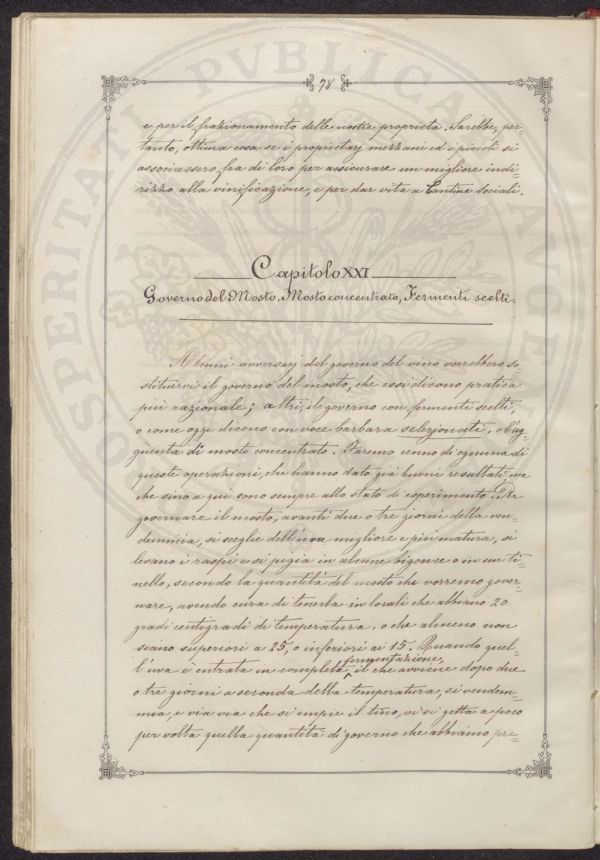 PROSPERITATI PVBLICAE AVGENDAE
78
e per il frazionamento delle nostre proprietà. Sarebbe, per=
tanto, ottima cosa se i proprietarj mezzani ed i piccoli si
associassero fra di loro per assicurare un migliore indi=
rizzo alla vinificazione, e per dar vita a Cantine Sociali.
Capitolo XXI
Governo del Mosto. Mosto concentrato, Fermenti scelti.
Alcuni avversarj del governo del vino vorrebbero so=
stituirvi il governo del mosto, che essi dicono pratica
più razionale; altri, il governo con fermenti scelti,
o come oggi dicono con voce barbara selezionati, o l'ag=
giunta di mosto concentrato. Faremo cenno di ognuna di
queste operazioni, che hanno dato già buoni resultati, ma
che sino a qui sono sempre allo stato di esperimento. Per
governare il mosto, avanti due o tre giorni della ven=
demmia, si sceglie dell'uva migliore e più matura, si
levano i raspi e si pigia in alcune bigonse o in un ti=
nello, secondo la quantità del mosto che vorremo gover=
nare, avendo cura di tenerla in locali che abbiano 20
gradi centigradi di temperatura, o che almeno non
siano superiori a 25, o inferiori ai 15. Quando quel=
l'uva è entrata in completa fermentazione, il che avviene dopo due
o tre giorni a seconda della temperatura, si vendem=
mia, e via via che si empie il tino, vi si getta a poco
per volta quella quantità di governo che abbiamo pre=